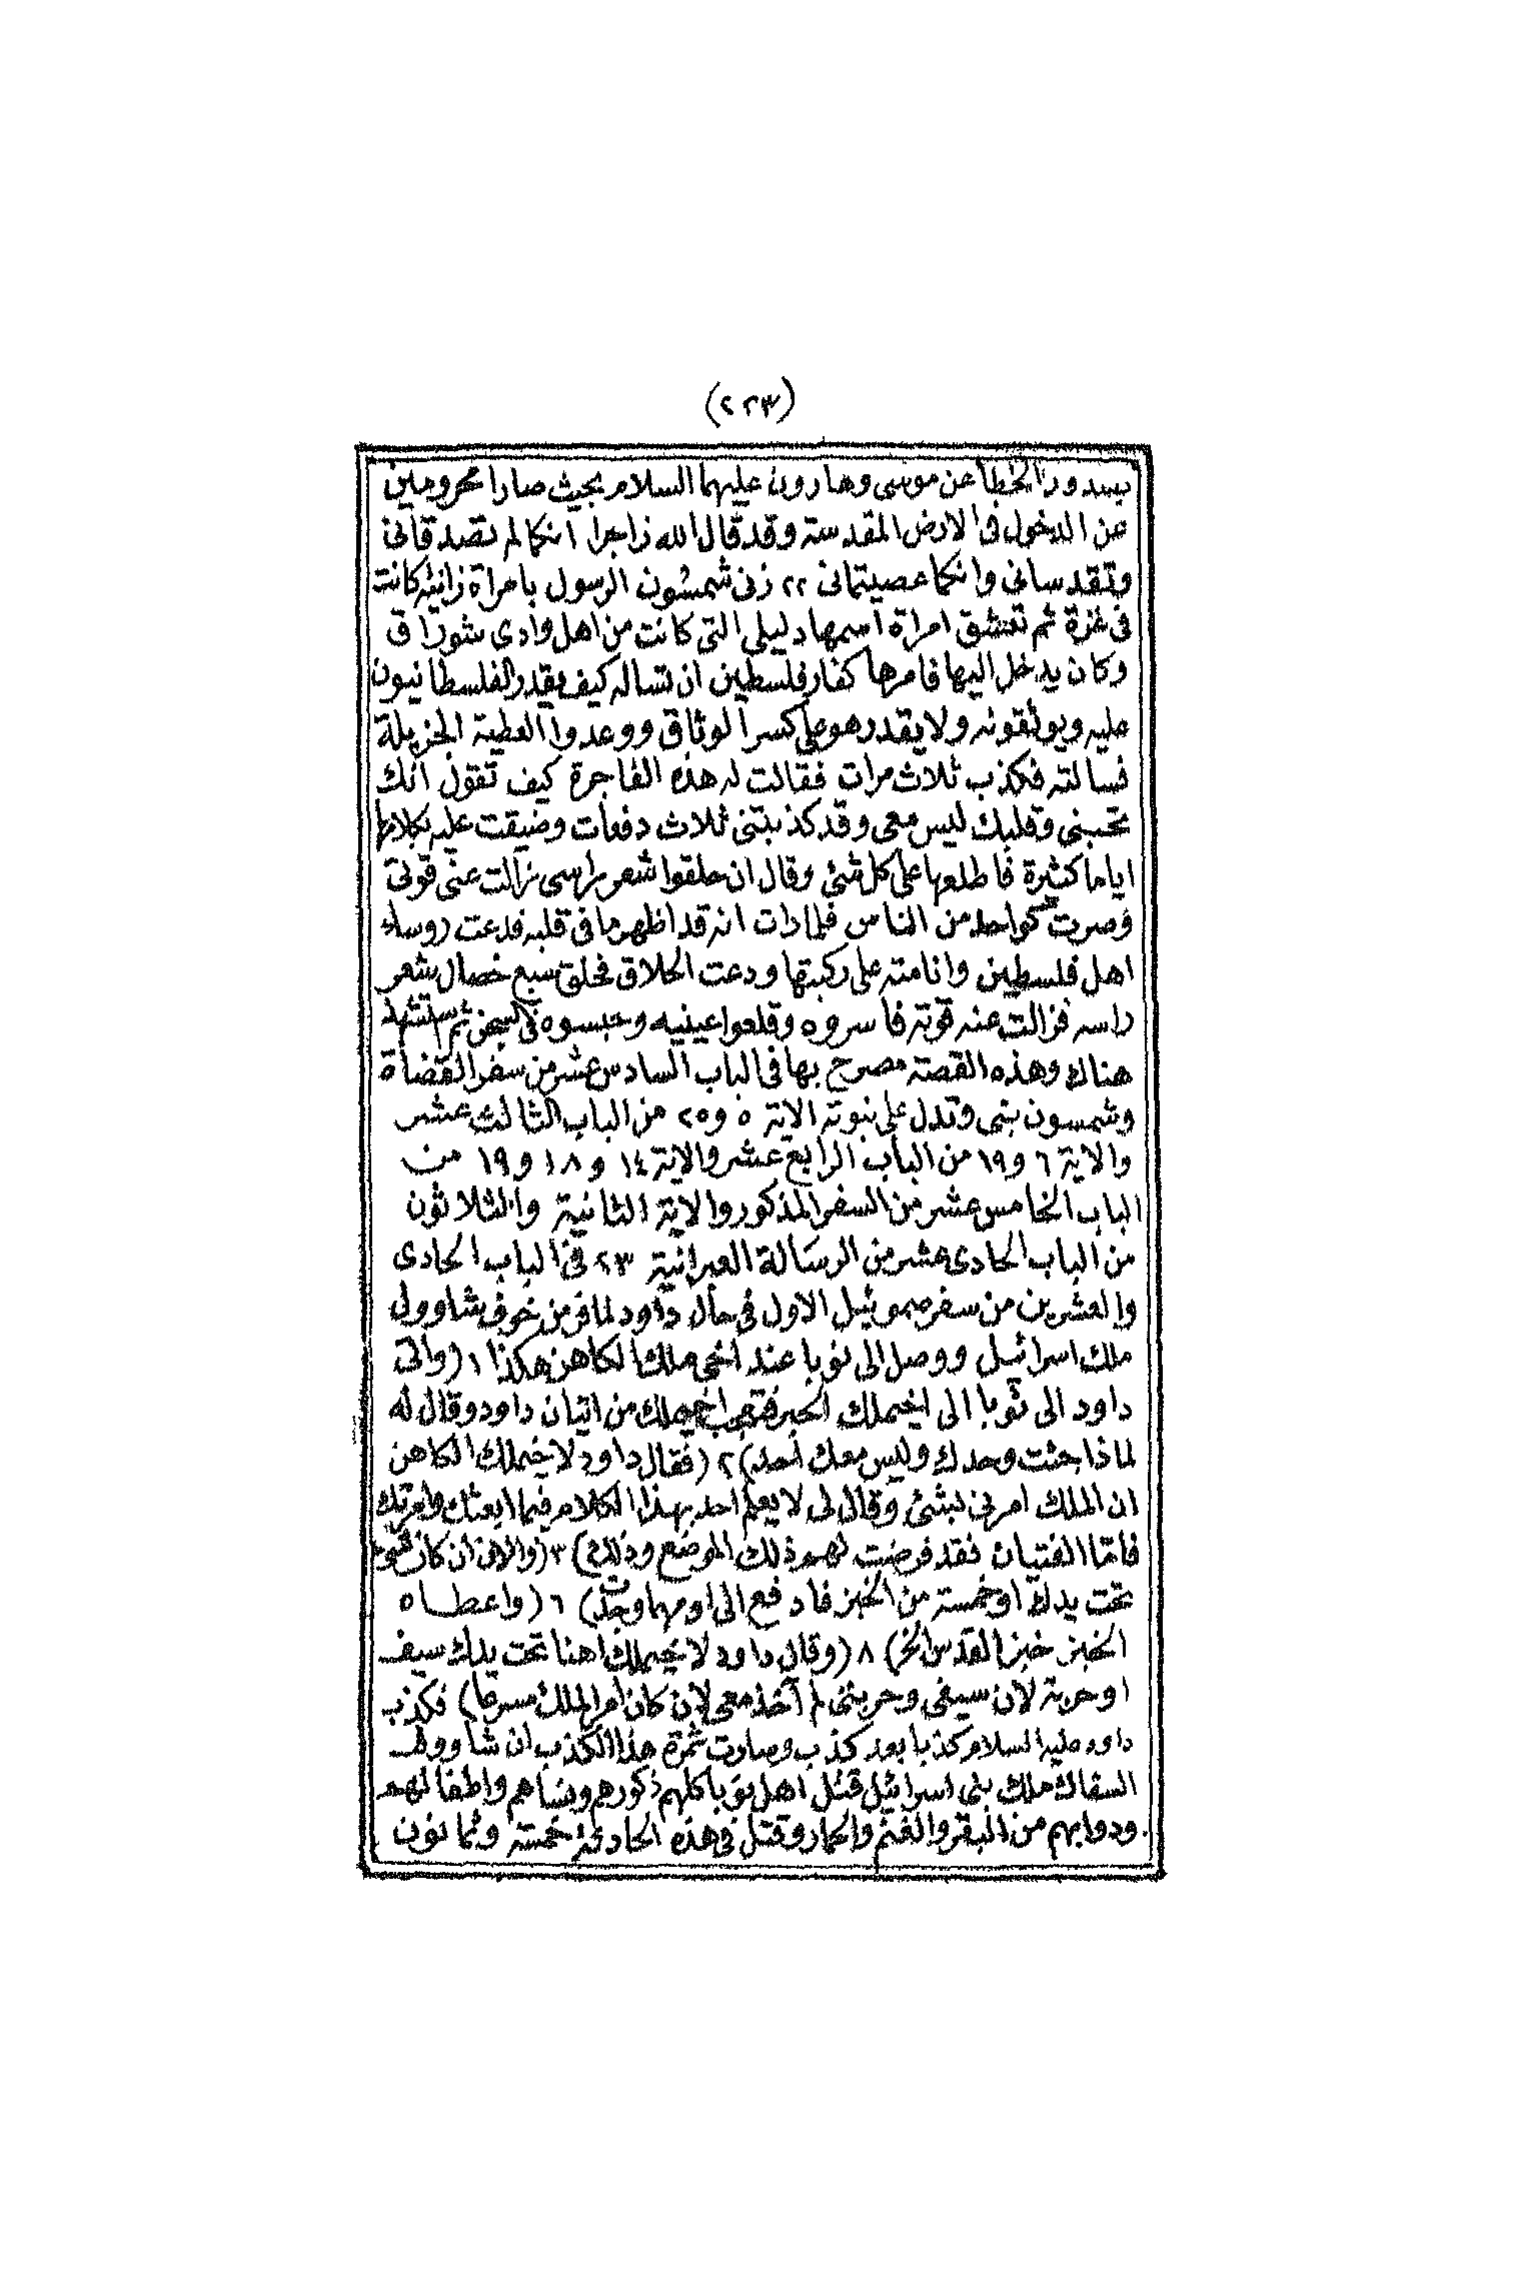 (٢٢٣)
بصدور الخطأ عن موسى وهارون عليهما السلام بحيث صارا محرومين
عن الدخول فى الارض المقدسة وقد قال الله زاجرا انكما لم تصدقانى
وتقدسانى وانكما عصيتمانى ٢٢ زنى شمشون الرسول بامراة زانية كانت
فى غزة ثم تعشق امراة اسمها دليلى التى كانت من اهل وادى شوراق
وكان يدخل اليها فامرها كفار فلسطين ان تساله كيف يقدر الفلسطانيون
عليه ويوثقونه ولا يقدر هو على كسر الوثاق ووعدوا العطية الجزيلة
فسالته فكذب ثلاث مرات فقالت له هذه الفاجرة كيف تقول انك
تحبنى وقلبك ليس معى وقد كذبتنى ثلاث دفعات وضيقت عليه بكلامها
اياما كثيرة فاطلعها على كل شئ وقال ان حلقوا شعر راسى زالت عنى قوتى
وصرت كواحد من الناس فلما رات انه قد اظهر ما فى قلبه فدعت روساء
اهل فلسطين وانامته على ركبتها ودعت الحلاق فحلق سبع خصال شعر
راسه فزالت عنه قوته فاسروه وقلعوا عينيه وحبسوه فى السجن ثم استشهد
هناك وهذه القصة مصرح بها فى الباب السادس عشر من سفر القضاة
وشمسون بنى وتدل على نبوته الاية ٥ و ٢٥ من الباب الثالث عشر
والاية ٦ و ١٩ من الباب الرابع عشر والاية ١٤ و ١٨ و ١٩ من
الباب الخامس عشر من السفر المذكور والاية الثانية والثلاثون
من الباب الحادى عشر من الرسالة العبرانية ٢٣ فى الباب الحادى
والعشرين من سفر صموئيل الاول فى حال داود لما فر من خوف شاوول
ملك اسرائيل ووصل الى نوبا عند اخى ملك الكاهن هكذا ١ (واتى
داود الى نوبا الى اخيملك الحبر فتعجب اخيملك من اتيان داود وقال له
لماذا جئت وحدك وليس معك احد) ٢ (فقال داود لاخيملك الكاهن
ان الملك امرنى بشئ وقال لى لا يعلم احد بهذا الكلام فيما ابعثك وامرتك
فاما الفتيان فقد فرضت لهم ذلك الموضع وذلك) ٣ (والان ان كان شئ
تحت يدك او خمسة من الخبز فادفع الى او مهما وجدت) ٦ (واعطاه
الخبز خبز القدس الخ) ٨ (وقال داود لاخيملك اهنا تحت يدك سيف
او حربة لان سيفى وحربتى لم آخذ معى لان كان امر الملك مسرعا) فكذب
داود عليه السلام كذبا بعد كذب وصارت ثمرة هذا الكذب ان شاوول
السفاك ملك بنى اسرائيل قتل اهل نوبا كلهم ذكورهم ونساهم واطفالهم
ودوابهم من البقر والغنم والحمار وقتل فى هذه الحادثة خمسة وثمانون